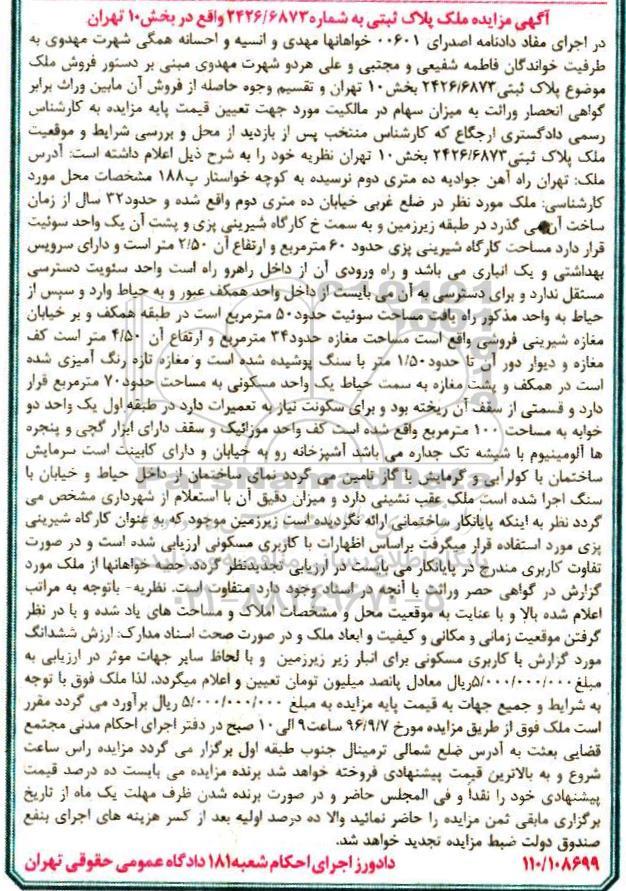 آگهی مزایده ملک پلاک ثبتی به شماره ۲۴۲۶/۶۸۷۳ واقع در بخش ۱۰ تهران
در اجرای مفاد دادنامه اصداری ۰۰۶۰۱ خواهانها مهدی و انسیه و احسانه همگی شهرت مهدوی به
طرفیت خواندگان فاطمه شفیعی و مجتبی و علی هردو شهرت مهدوی مبنی بر دستور فروش ملک
موضوع پلاک ثبتی ۲۴۲۶/۶۸۷۳ بخش ۱۰ تهران و تقسیم وجوه حاصله از فروش آن مابین وراث برابر
گواهی انحصار وراثت به میزان سهام در مالکیت مورد جهت تعیین قیمت پایه مزایده به کارشناس
رسمی دادگستری ارجگاع که کارشناس منتخب پس از بازدید از محل و بررسی شرایط و موقعیت
ملک پلاک ثبتی ۲۴۲۶/۶۸۷۳ بخش ۱۰ تهران نظریه خود را به شرح ذیل اعلام داشته است: آدرس
ملک: تهران راه آهن جوادیه ده متری دوم نرسیده به کوچه خواستار پ۱۸۸ مشخصات محل مورد
کارشناسی: ملک مورد نظر در ضلع غربی خیابان ده متری دوم واقع شده و حدود ۳۲ سال از زمان
ساخت آن می گذرد در طبقه زیرزمین و به سمت خ کارگاه شیرینی پزی و پشت آن یک واحد سوئیت
قرار دارد مساحت کارگاه شیرینی پزی حدود ۶۰ مترمربع و ارتفاع آن ۲/۵۰ متر است و دارای سرویس
بهداشتی و یک انباری می باشد و راه ورودی آن از داخل راهرو راه است واحد سئویت دسترسی
مستقل ندارد و برای دسترسی به آن می بایست از داخل واحد همکف عبور و به حیاط وارد و سپس از
حیاط به واحد مذکور راه یافت مساحت سوئیت حدود ۵۰ مترمربع است در طبقه همکف و بر خیابان
مغازه شیرینی فروشی واقع است مساحت مغازه حدود ۳۴ مترمربع و ارتفاع آن ۴/۵۰ متر است کف
مغازه و دیوار دور آن تا حدود ۱/۵۰ متر با سنگ پوشیده شده است و مغازه تازه رنگ آمیزی شده
است در همکف و پشت مغازه به سمت حیاط یک واحد مسکونی به مساحت حدود ۷۰ مترمربع قرار
دارد و قسمتی از سقف آن ریخته بود و برای سکونت نیاز به تعمیرات دارد در طبقه اول یک واحد دو
خوابه به مساحت ۱۰۰ مترمربع واقع شده است کف واحد موزائیک و سقف دارای ابزار گچی و پنجره
ها آلومینیوم با شیشه تک جداره می باشد آشپزخانه رو به خیابان و دارای کابینت است سرمایش
ساختمان با کولرآبی و گرمایش با گاز تامین می گردد نمای ساختمان از داخل حیاط و خیابان با
سنگ اجرا شده است ملک عقب نشینی دارد و میزان دقیق آن با استعلام از شهرداری مشخص می
گردد نظر به اینکه پایانکار ساختمانی ارائه نگردیده است زیرزمین موجود که به عنوان کارگاه شیرینی
پزی مورد استفاده قرار میگرفت براساس اظهارات با کاربری مسکونی ارزیابی شده است و در صورت
تفاوت کاربری مندرج در پایانکار می بایست در ارزیابی تجدیدنظر گردد حصه خواهانها از ملک مورد
گزارش در گواهی حصر وراثت با آنچه در اسناد وجود دارد متفاوت است. نظریه- باتوجه به مراتب
اعلام شده بالا و با عنایت به موقعیت محل و مشخصات املاک و مساحت های یاد شده و با در نظر
گرفتن موقعیت زمانی و مکانی و کیفیت و ابعاد ملک و در صورت صحت اسناد مدارک: ارزش ششدانگ
مورد گزارش با کاربری مسکونی برای انبار زیر زیرزمین و با لحاظ سایر جهات موثر در ارزیابی به
مبلغ ۵/۰۰۰/۰۰۰/۰۰۰ریال معادل پانصد میلیون تومان تعیین و اعلام میگردد. لذا ملک فوق با توجه
به شرایط و جمیع جهات به قیمت پایه مزایده به مبلغ ۵/۰۰۰/۰۰۰/۰۰۰ ریال برآورد می گردد مقرر
است ملک فوق از طریق مزایده مورخ ۹۶/۹/۷ ساعت ۹ الی ۱۰ صبح در دفتر اجرای احکام مدنی مجتمع
قضایی بعثت به آدرس ضلع شمالی ترمینال جنوب طبقه اول برگزار می گردد مزایده راس ساعت
شروع و به بالاترین قیمت پیشنهادی فروخته خواهد شد برنده مزایده می بایست ده درصد قیمت
پیشنهادی خود را نقداً و فی المجلس حاضر و در صورت برنده شدن ظرف مهلت یک ماه از تاریخ
برگزاری مابقی ثمن مزایده را حاضر نمائید والا ده درصد اولیه بعد از کسر هزینه های اجرای بنفع
صندوق دولت ضبط مزایده تجدید خواهد شد.
۱۱۰/۱۰۸۶۹۹ دادورز اجرای احکام شعبه ۱۸۱ دادگاه عمومی حقوقی تهران